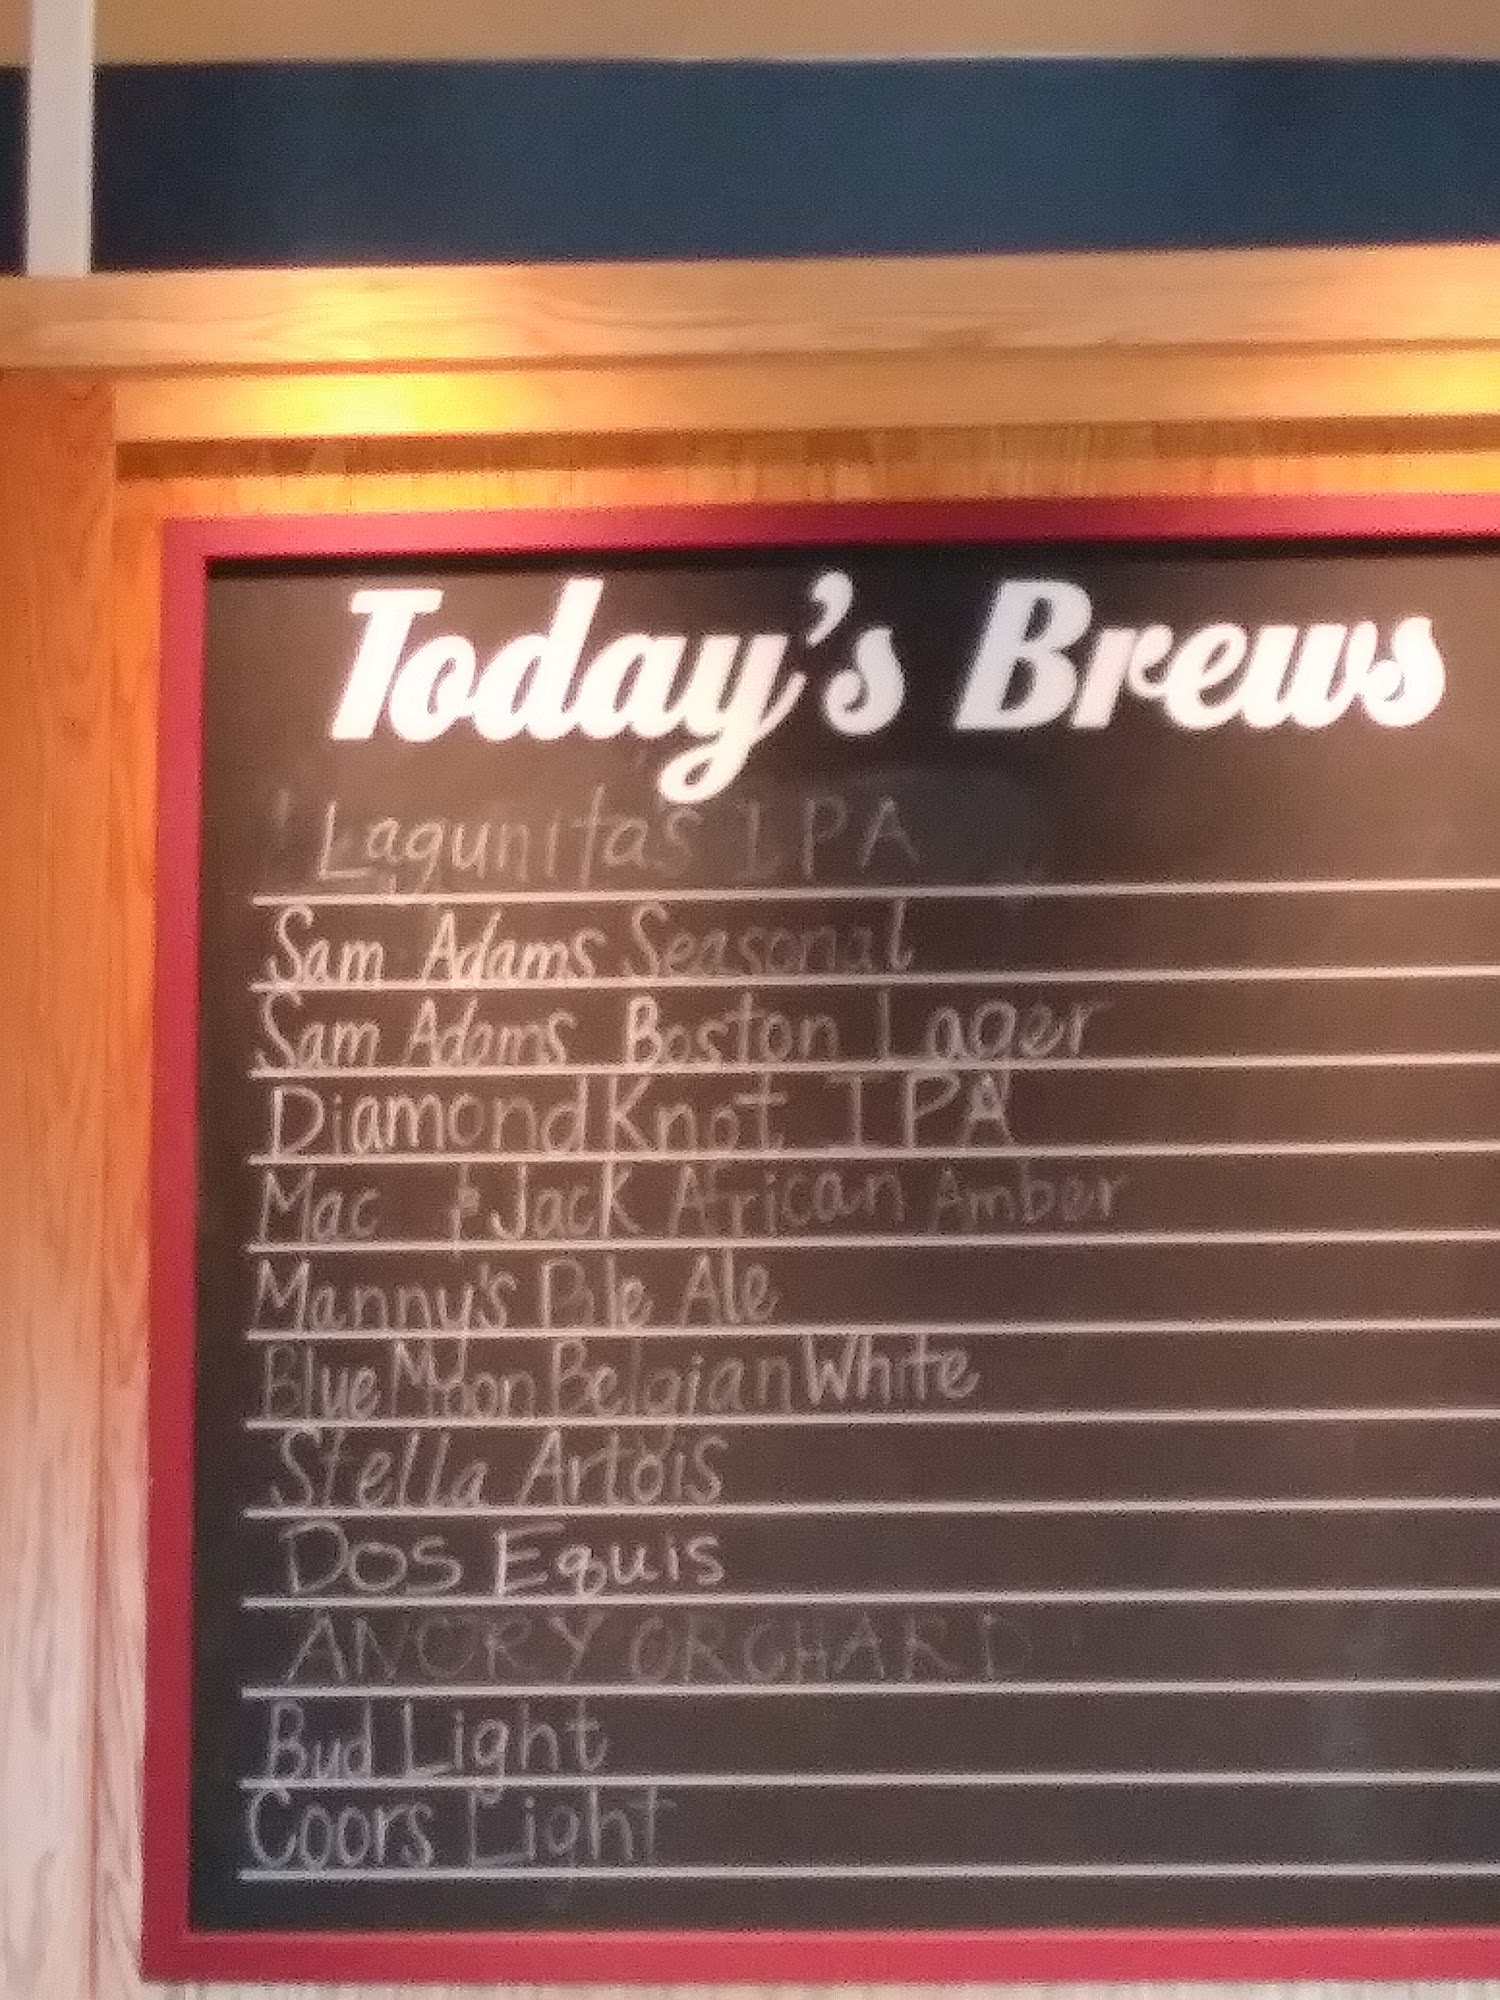 Today's Brews
Lagunita's IPA
Sam Adams Seasonal
Sam Adams Boston Lager
Diamond Knot IPA
Mac & Jack African Amber
Manny's Pale Ale
Blue Moon Belgian White
Stella Artois
Dos Equis
ANGRY ORCHARD
Bud Light
Coors Light